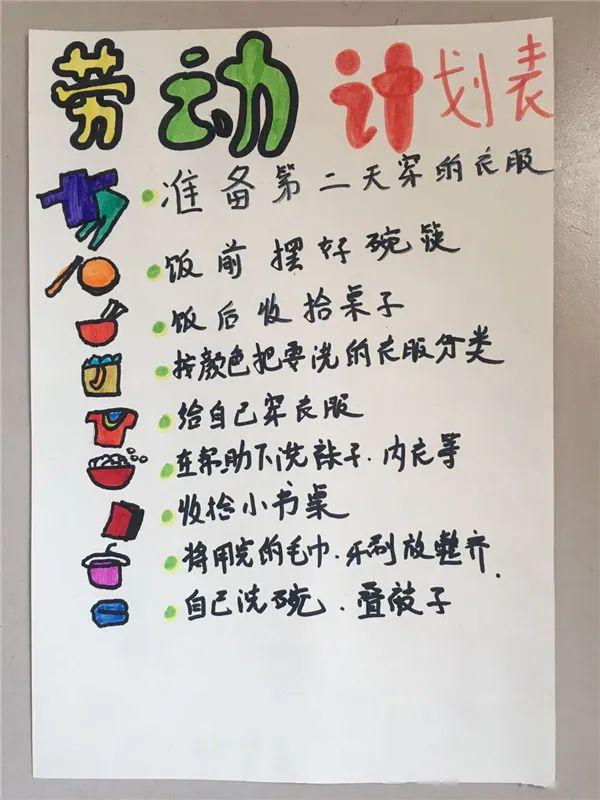 劳动计划表
准备第二天穿的衣服
饭前摆好碗筷
饭后收拾桌子
按颜色把要洗的衣服分类
给自己穿衣服
在帮助下洗袜子.内衣等
收拾小书桌
将用完的毛巾.牙刷放整齐.
自己洗碗.叠被子